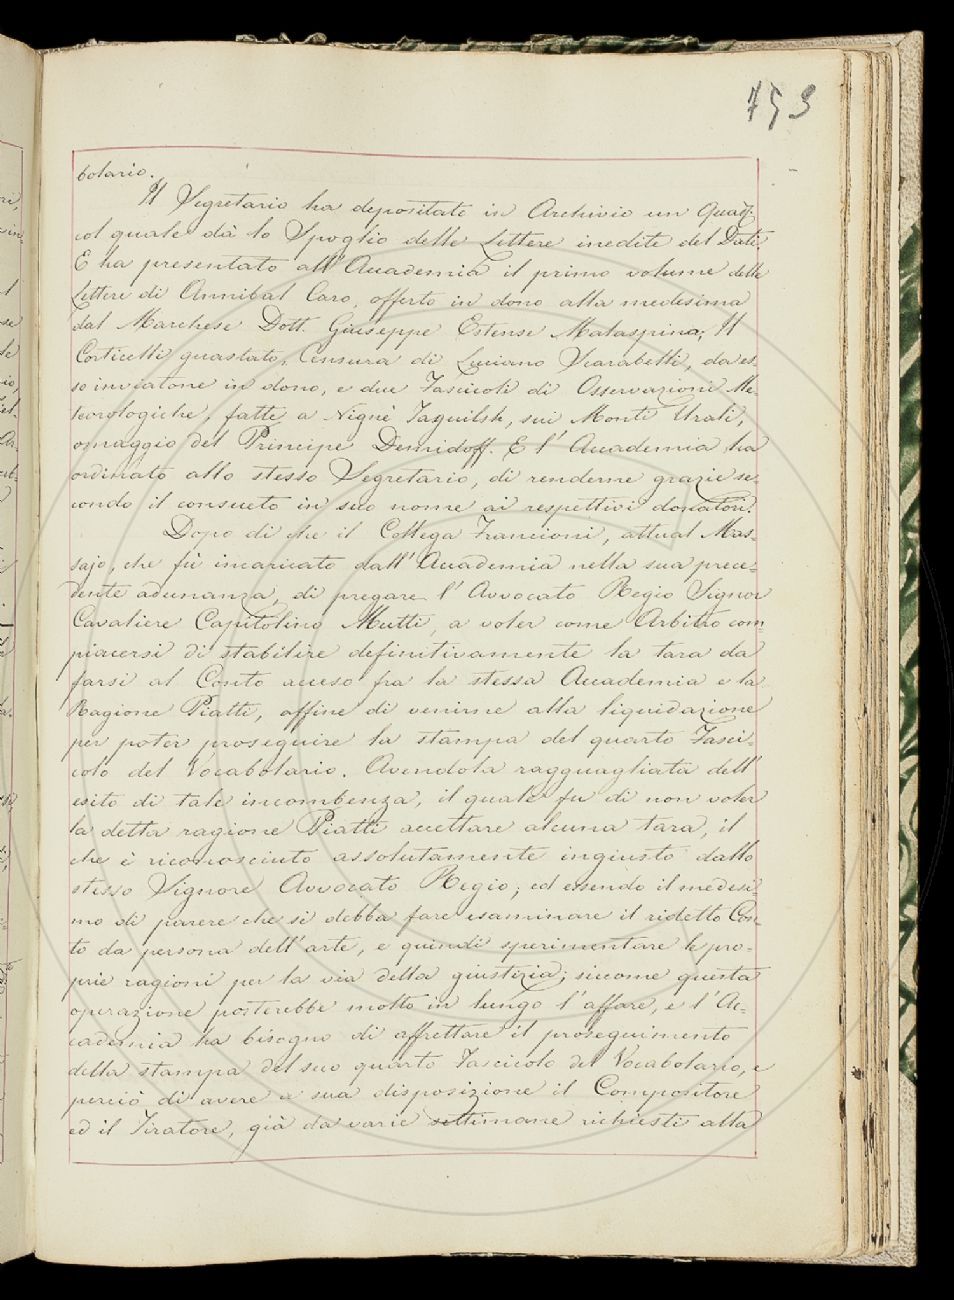 753
bolario.
Il Segretario ha depositato in Archivio un Quad:
col quale dà lo Spoglio delle Lettere inedite del Dati.
E ha presentato all'Accademia il primo volume delle
Lettere di Annibal Caro, offerto in dono alla medesima
dal Marchese Dott. Giuseppe Estense Malaspina; Il
Corticelli guastato, Censura di Luciano Scarabelli, da es-
so inviatone in dono, e due Fascicoli di Osservazioni Me-
teorologiche, fatte a Nignè Taguilsk, sui Monti Urali,
omaggio del Principe Demidoff. E l'Accademia ha
ordinato allo stesso Segretario, di renderne grazie se-
condo il consueto in suo nome ai respettivi donatori.
Dopo di che il Collega Francioni, attual Mas-
sajo, che fù incaricato dall'Accademia nella sua prece-
dente adunanza, di pregare l'Avvocato Regio Signor
Cavaliere Capitolino Mutti, a voler come Arbitro com-
piacersi di stabilire definitivamente la tara da
farsi al Conto acceso fra la stessa Accademia e la
Ragione Piatti, affine di venirne alla liquidazione
per poter proseguire la stampa del quarto Fasci-
colo del Vocabolario. Avendola ragguagliata dell'
esito di tale incombenza, il quale fu di non voler
la detta ragione Piatti accettare alcuna tara, il
che è riconosciuto assolutamente ingiusto dallo
stesso Signore Avvocato Regio; ed essendo il medesi-
mo di parere che si debba fare esaminare il ridetto Con-
to da persona dell'arte, e quindi sperimentare le pro-
prie ragioni per la via della giustizia; siccome questa
operazione porterebbe molto in lungo l'affare, e l'Ac-
cademia ha bisogno di affrettare il proseguimento
della stampa del suo quarto Fascicolo del Vocabolario, e
perciò di avere a sua disposizione il Compositore
ed il Tiratore, già da varie settimane richiesti alla